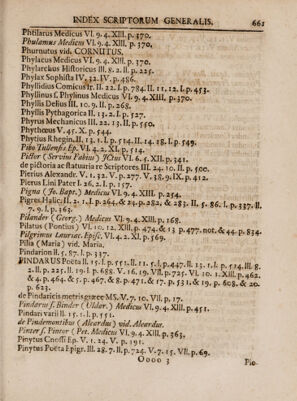 INDEX SCRIPTORUM GENERALIS. 661
Philarius Medicus VI. 9. 4. XIII. p. 370.
Phulamus Medicus VI. 9. 4. XIII. p. 370.
Phurnutus vid. CORNUTUS.
Phylacus Medicus VI. 9. 4. XIII. p. 370.
Phylarchus Historicus III. 8. 2. II. p. 225.
Phylax Sophista IV. 32. IV. p. 486.
Phyllidius Comicus Ir. II. 22. I. p. 784. II. 11. 12. I. p. 453.
Phyllinus f. Phylinus Medicus VI. 9. 4. XIII. p. 370.
Phyllis Delius III. 10. 9. II. p. 268.
Phyllis Pythagorica II. 13. 2. I. p. 527.
Phyrus Mechanicus III. 22. 13. II. p. 550.
Phythœus V. 45. X. p. 544.
Phytius Rhegin. II. 13. 1. I. p. 514. II. 14. 18. I. p. 549.
Pibo Tullensis Ep. VI. 4. 2. XI. p. 514.
Pictor (Servius Fabius) JCtus VI. 6. 5. XII. p. 341.
de pictoria ac statuaria re Scriptores III. 24. 10. II. p. 500.
Pierius Alexandr. V. 1. 32. V. p. 277. V. 38. 9. IX. p. 412.
Pierus Lini Pater I. 26. 2. I. p. 157.
Pigna (Jo. Bapt.) Medicus VI. 9. 4. XIII. p. 254.
Pigres Halic. II. 2. 1. I. p. 264. & 23. p. 282. & 283. II. 5. 86. I. p. 337. II.
7. 9. I. p. 363.
Pilander (Georg.) Medicus VI. 9. 4. XIII. p. 168.
Pilatus (Pontius) VI. 10. 12. XIII. p. 474. & 13. p. 477. not. & 44. p. 834.
Pilgrimus Lauriac. Episc. VI. 4. 2. XI. p. 569.
Pilia (Maria) vid. Maria.
Pindarion II. 5. 87. I. p. 337.
PINDARUS Poëta II. 15. I. p. 551. II. 11. 5. I. p. 447. II. 13. 1. I. p. 514. III. 8.
2. II. p. 225. II. 19. I. p. 688. V. 16. 19. VII. p. 725. VI. 10. 1. XIII. p. 462.
& 4. p. 464. & 5. p. 467. & 8. p. 471. & 17. p. 531. & 19. p. 608. & 20.
p. 623.
de Pindaricis metris græce MS. V. 7. 10. VII. p. 17.
Pindarus s. Binder (Uldar.) Medicus VI. 9. 4. XIII. p. 451.
Pindari varii II. 15. 1. I. p. 551.
de Pindemontibus (Aleardus) vid. Aleardus.
Pinter s. Pintor (Pet. Medicus VI. 9. 4. XIII. p. 363.
Pinytus Cnossi Ep. V. 1. 24. V. p. 191.
Pinytus Poëta Epigr. III. 28. 7. II. p. 724. V. 7. 15. VII. p. 69.
Oooo 3 Pio